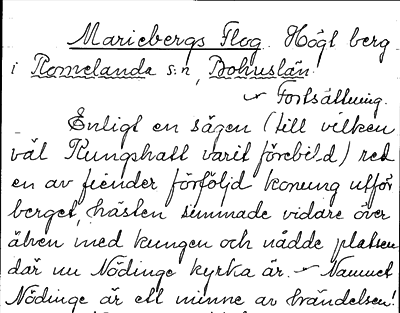 Mariebergs Flog. Högt berg
i Romelanda s:n, Bohuslän.
Fortsättning.
Enligt en sägen (till vilken
väl Kungshatt varit förebild) red
en av fiender förföljd konung utför
berget, hästen simmade vidare över
älven med kungen och nådde platsen
där nu Nödinge kyrka är. Namnet
Nödinge är ett minne av händelsen!